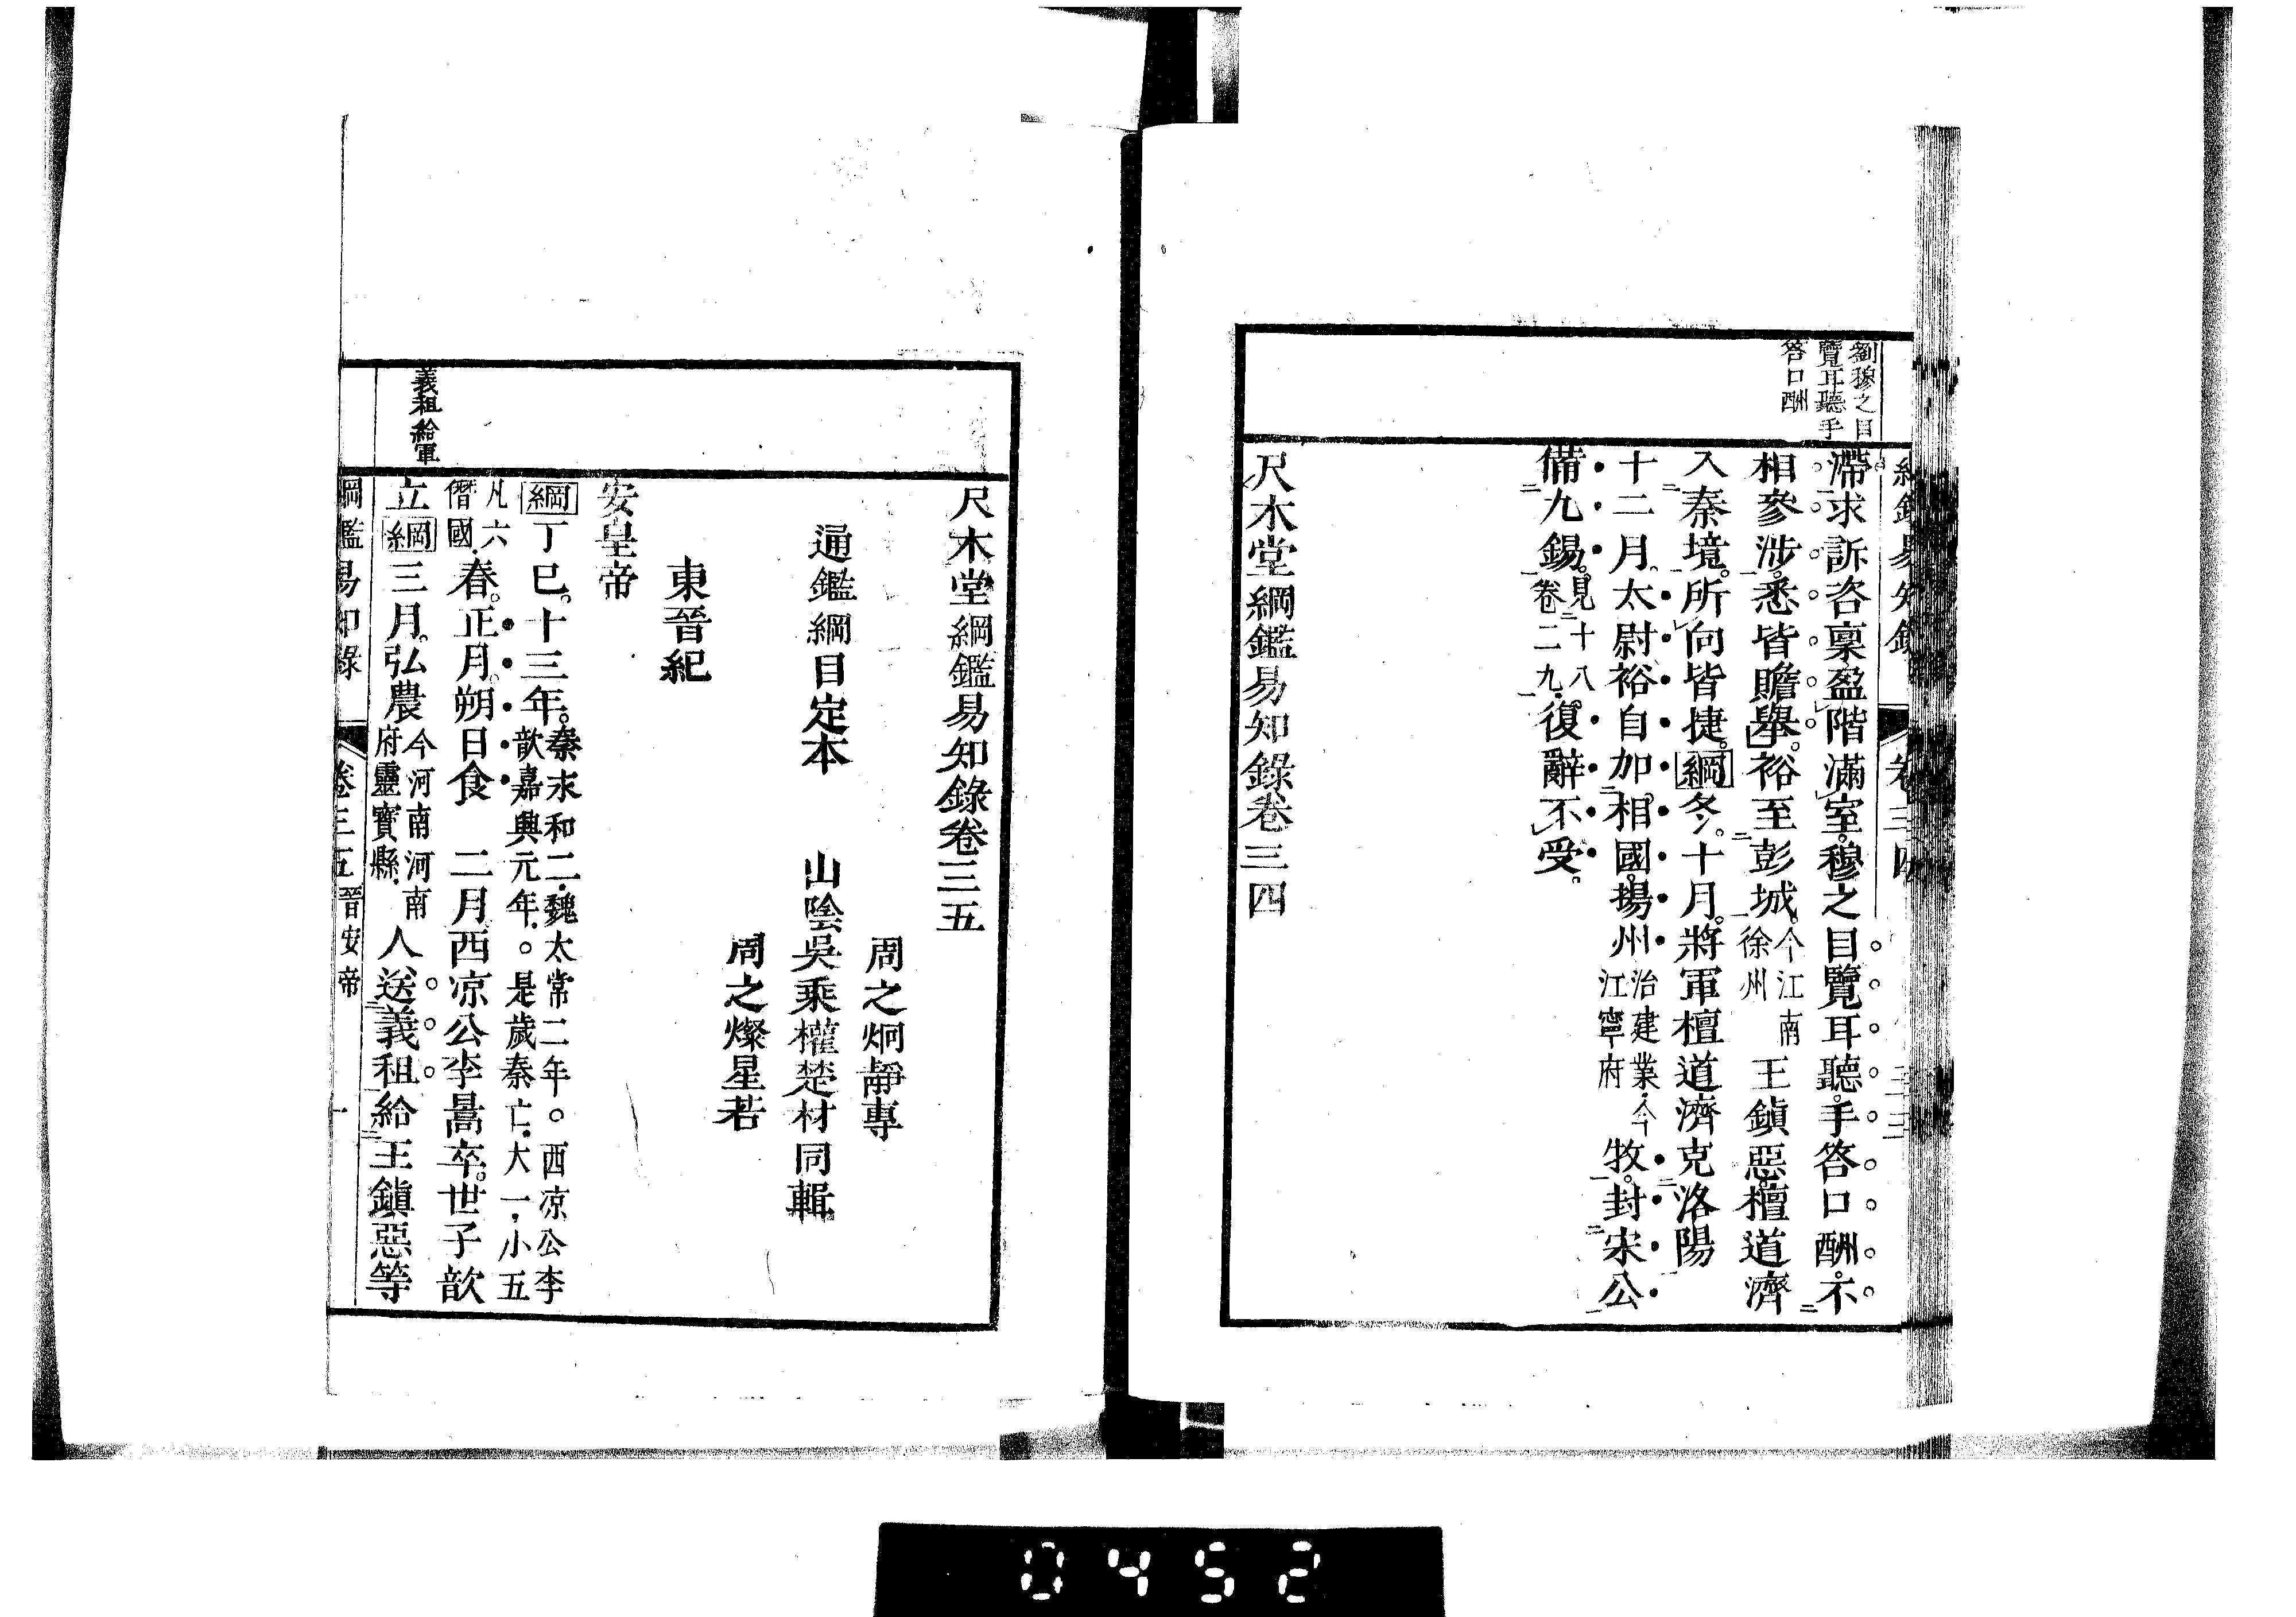 劉穆之目
覽耳聽手
答口酬
滯求訴咨稟盈階滿室穆之目覽耳聽手答口酬不
相參涉悉皆贍舉裕至彭城今江南徐州王鎮惡檀道濟
入秦境所向皆捷綱冬十月將軍檀道濟克洛陽
十二月太尉裕自加相國揚州治建業今江寧府牧封宋公
備九錫見十八卷二九復辭不受
尺木堂綱鑑易知錄卷三四
尺木堂綱鑑易知錄卷三五
周之炯靜專
通鑑綱目定本 山陰吳乘權楚材同輯
周之燦星若
東晉紀
安皇帝
綱丁巳十三年秦永和二魏太常二年○西凉公李歆嘉興元年○是歲秦亡大一小五
凡六僭國春正月朔日食 二月西凉公李暠卒世子歆
義租給軍
立綱三月弘農今河南河南府靈寶縣人送義租給王鎮惡等
綱鑑易知錄 卷三五 晉安帝 一
0452